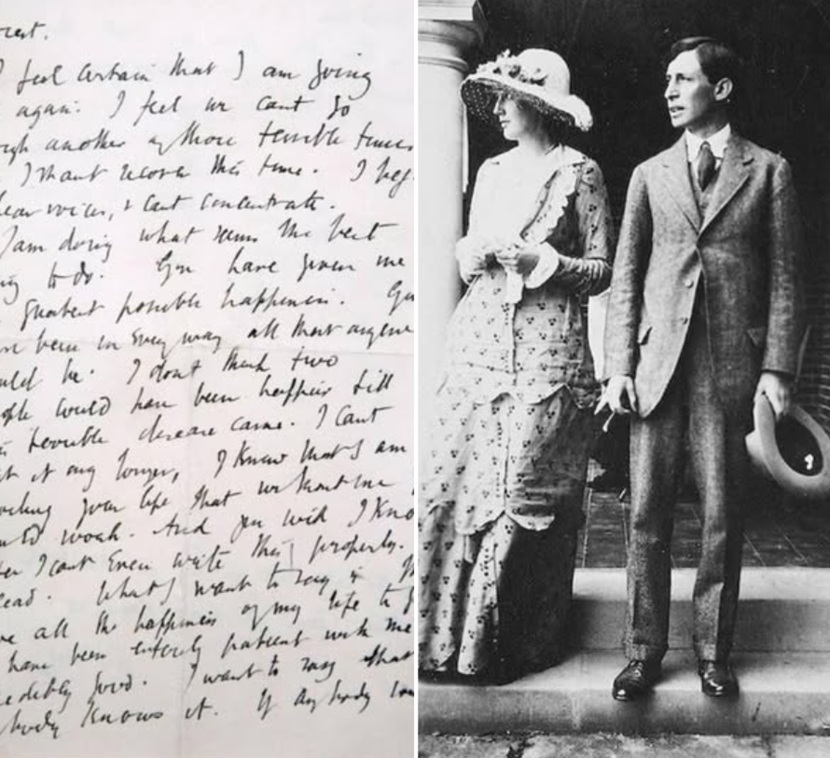 rest.
I feel certain that I am going
again. I feel we cant go
ugh another of those terrible times
I shant recover this time. I beg
ear voices, & cant concentrate.
I am doing what seems the best
ng to do. You have given me
greatest possible happiness. You
ve been in every way all that anyone
uld be. I dont think two
ople could have been happier till
s terrible disease came. I cant
ht it any longer, I know that I am
oiling your life that without me
uld work. And you will I kno
I cant even write this properly.
ead. What I want to say is
we all the happiness of my life to
have been entirely patient with me
edibly good. I want to say that
ybody knows it. If anybody